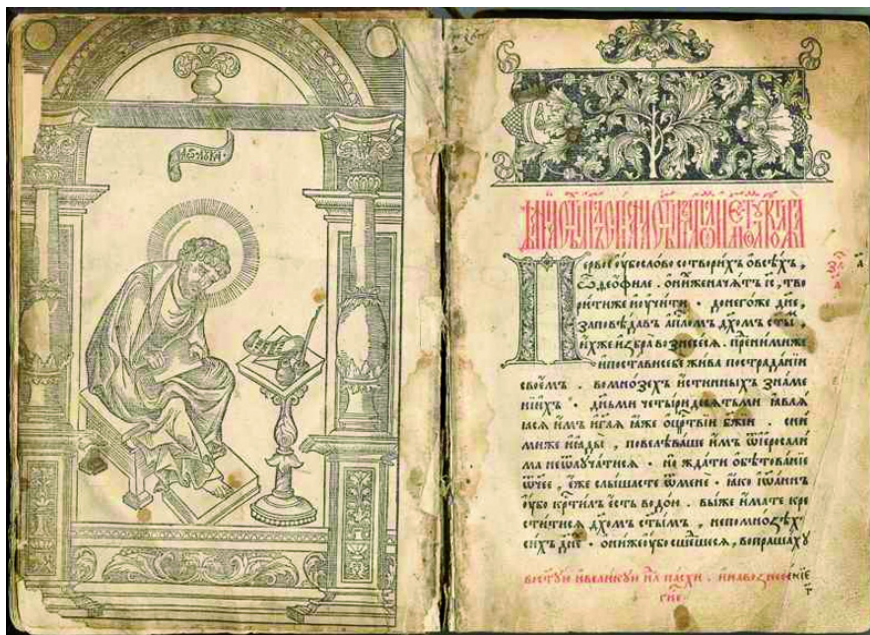 лꙋка
Первое оубо слово сотворихъ ѡвсѣхъ,
ѽ деѡфиле. ѡнихже начатъ іс҃, тво
рити же и оучити. донегоже дн҃е,
заповѣдавъ ап҃лмъ дх҃омъ ст҃ы,
ихже избра вознесеся. пре ними же
и постави себе жива по страданїи
своемъ. во мнозех истинныхъ знаме
нїихъ. дн҃ьми четыридевѧтьми ꙗвлѧ
ꙗсѧ имъ и гл҃ѧ ꙗже о цр҃твїи бж҃їи. сни
миже и ꙗды, повелѣваше имъ ѿ іеросали
ма не ѿлучатися. но ждати обѣтованїе
ѿчее, еже слышасте ѿ мене. ꙗко іѡаннъ
оубо кр҃тилъ есть водою. вы же имате кре
ститися дх҃омъ ст҃ымъ, не по мнозѣхъ
сихъ дн҃е. они же оубо сшешеся, вопрашахꙋ
в ст҃ꙋю и великꙋю нл҃ пасхи. и на вознесенїе
гн҃е